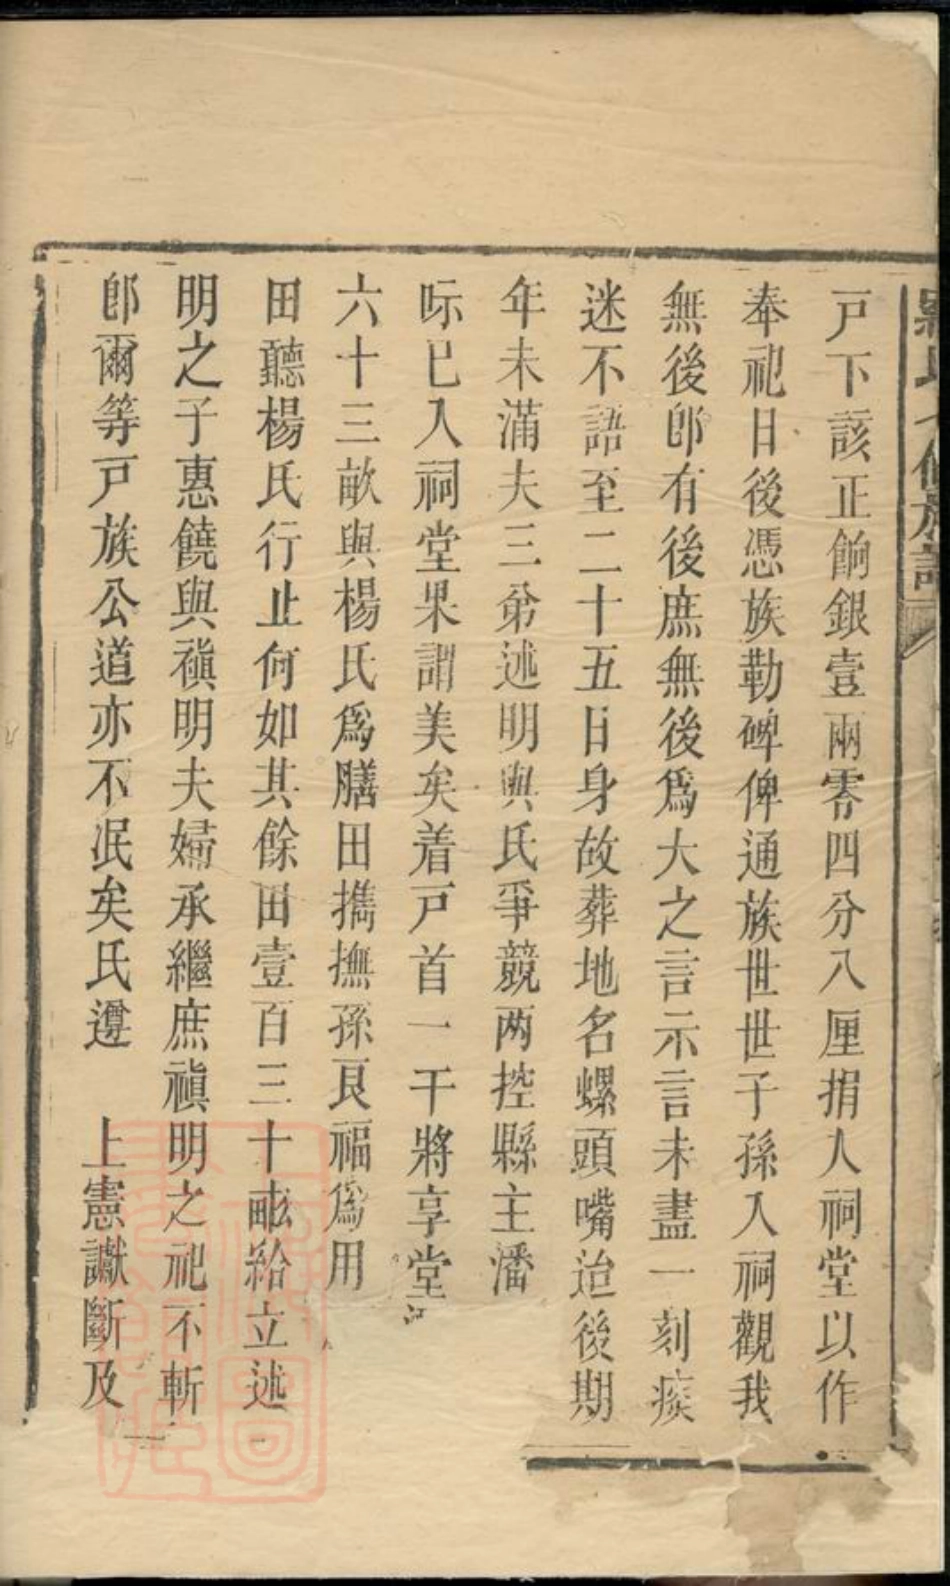 戸下該正餉銀壹兩零四分八厘捐人祠堂以作
奉祀日後憑族勒碑俾通族世世子孫入祠觀我
無後卽有後庶無後爲大之言示言未盡一刻痰
迷不語至二十五日身故葬地名螺頭嘴迨後期
年未滿夫三弟述明與氏爭競两控縣主潘
际已入祠堂果謂美矣着戸首一干將享堂
六十三畝與楊氏爲膳田擕撫孫艮福爲用
田聽楊氏行止何如其餘田壹百三十畝給立述
明之子惠饒與禛明夫婦承繼庶禛明之祀不斬
卽爾等戸族公道亦不泯矣氏遵　上憲讞斷及